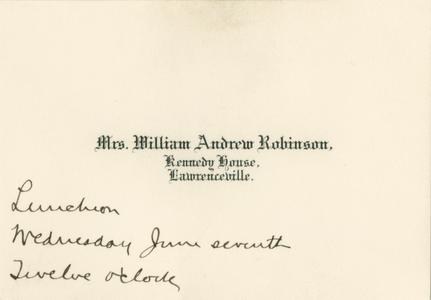 Mrs. William Andrew Robinson,
Kennedy House,
Lawrenceville.
Luncheon
Wednesday June seventh
Twelve o'clock